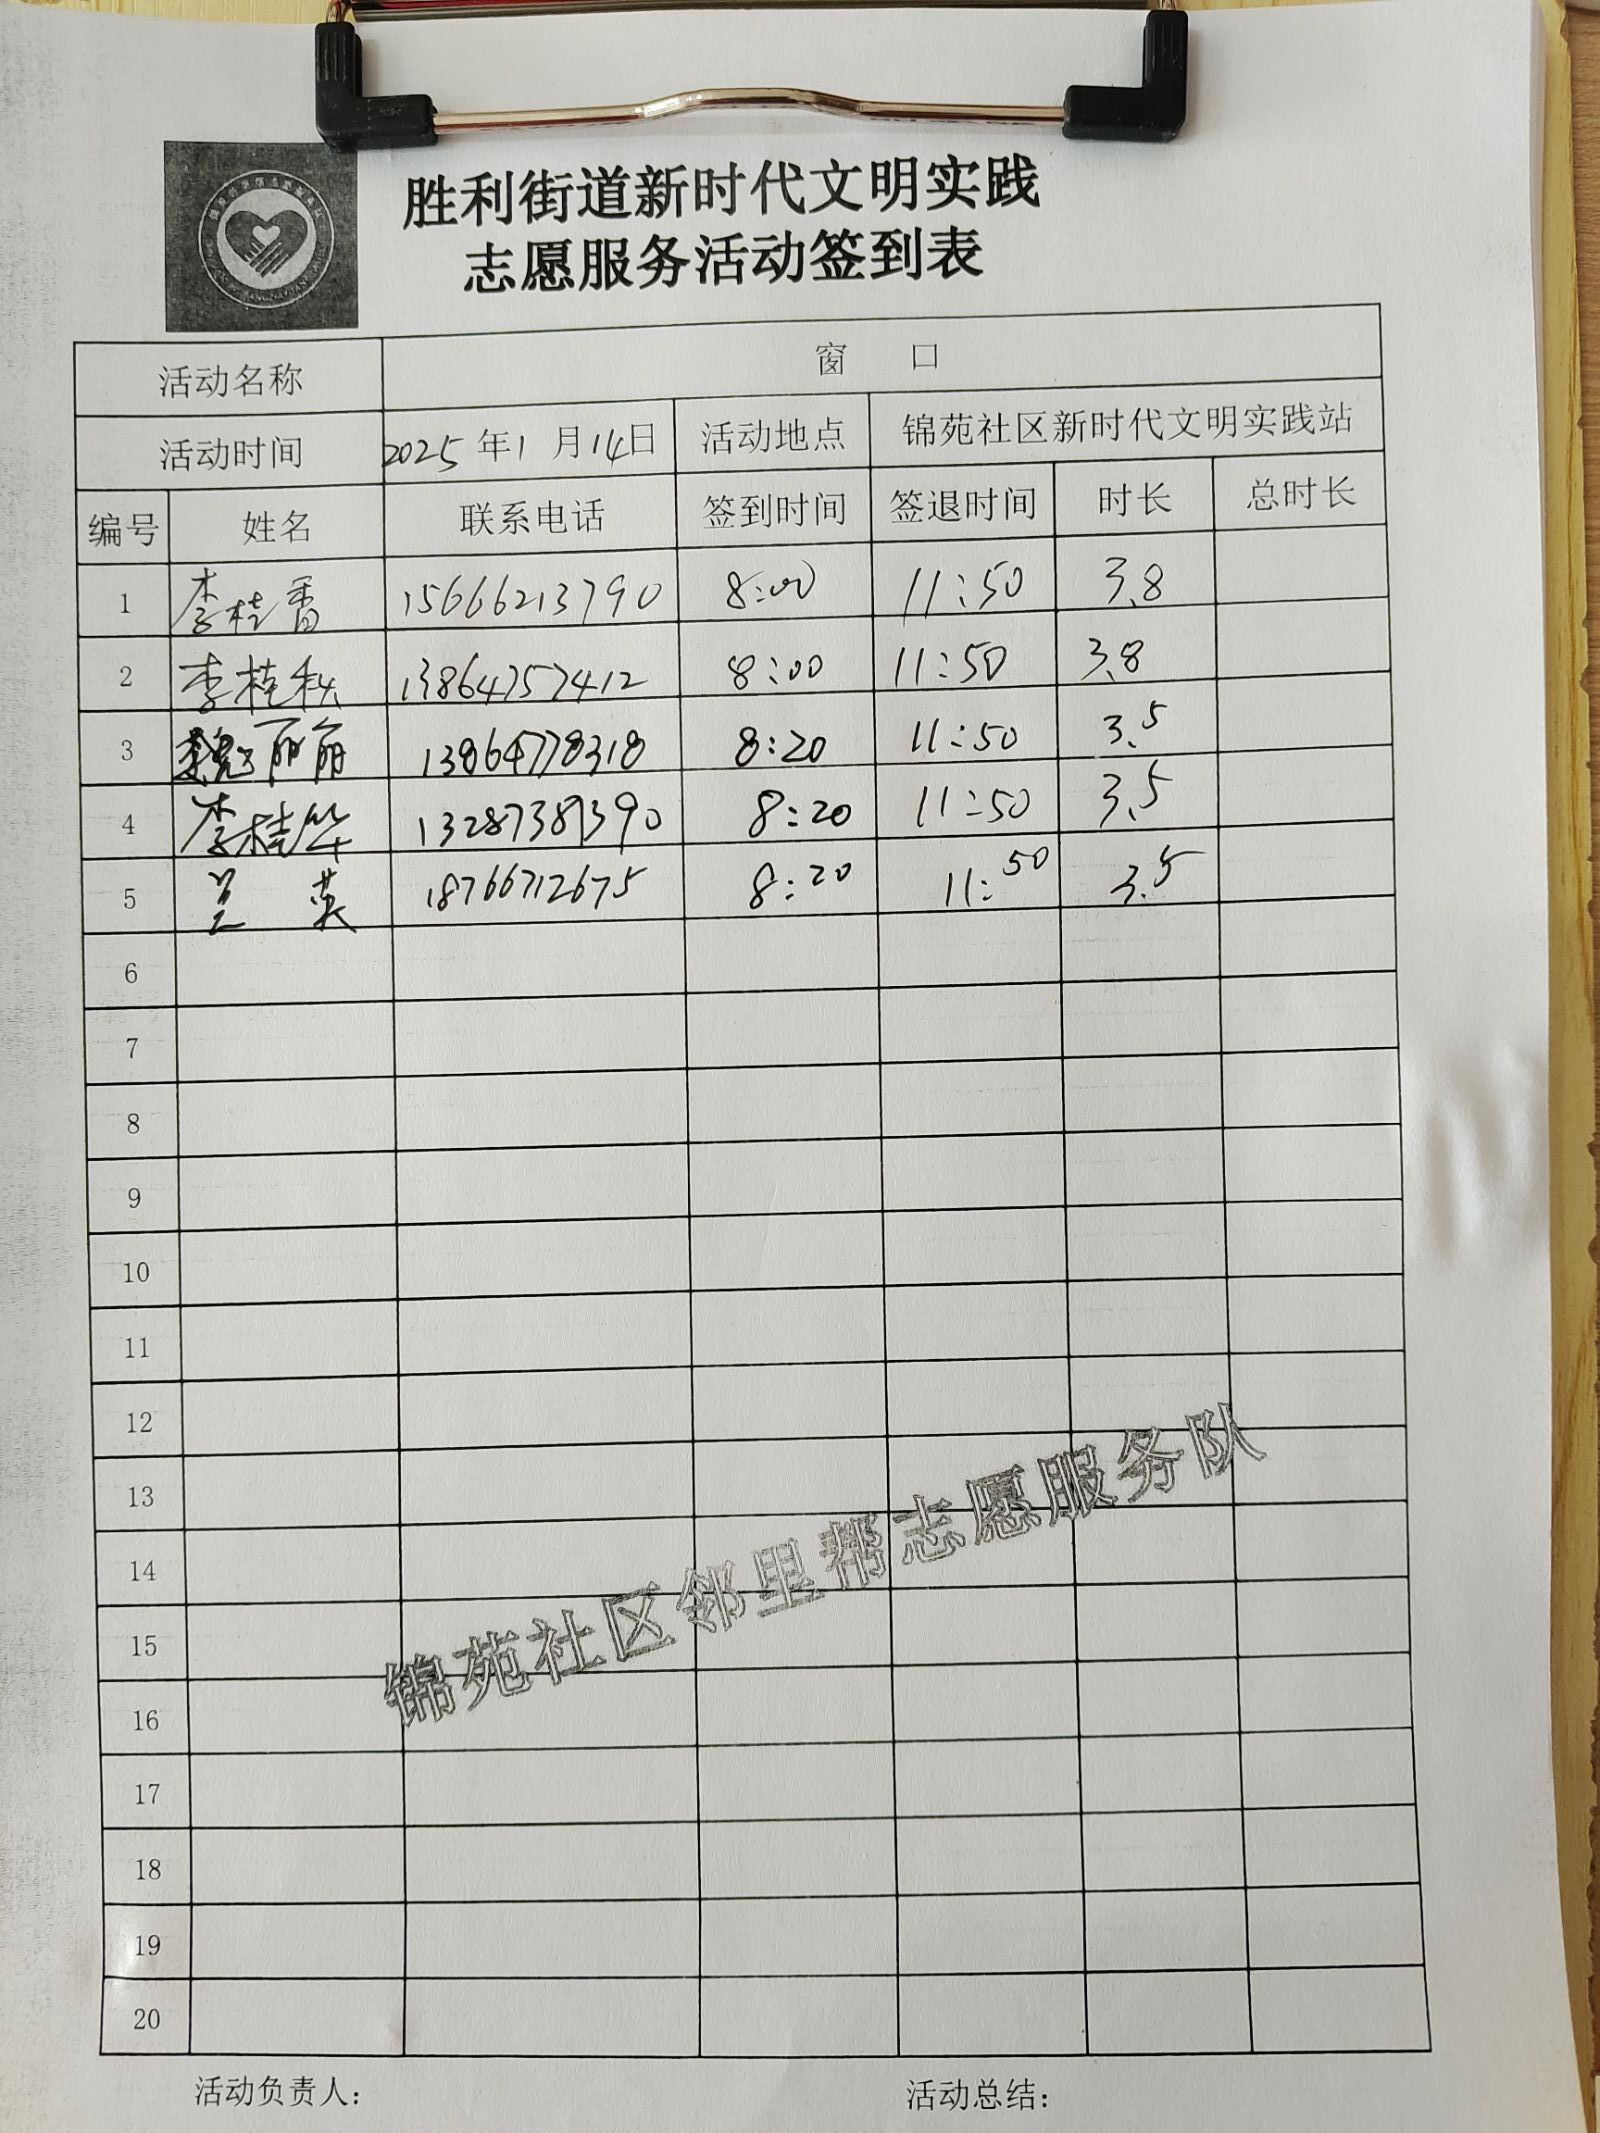 胜利街道新时代文明实践
志愿服务活动签到表
活动名称 窗 口
活动时间 2025年1月14日 活动地点 锦苑社区新时代文明实践站
编号 姓名 联系电话 签到时间 签退时间 时长 总时长
1 李桂香 15666213790 8:00 11:50 3.8
2 李桂秋 13864757412 8:00 11:50 3.8
3 魏丽丽 13864778318 8:20 11:50 3.5
4 李桂华 13287389390 8:20 11:50 3.5
5 兰英 18766712675 8:20 11:50 3.5
6
7
8
9
10
11
12
13
14
15
16
17
18
19
20
锦苑社区邻里帮志愿服务队
活动负责人: 活动总结: